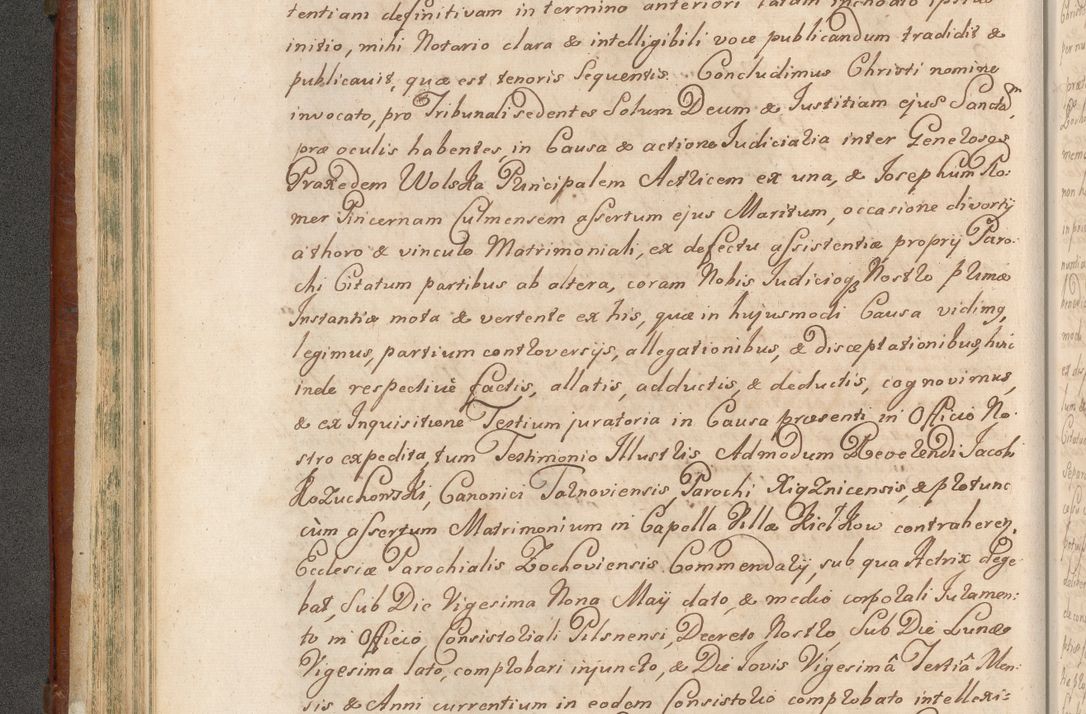 tentiam definitivam in termino anteriori latam inchoato ipsius
initio, mihi Notario clara & intelligibili voce publicandum tradidit &
publicavit, quæ est tenoris sequentis. Concludimus Christi nomine
invocato, pro Tribunali sedentes Solum Deum & Justitiam ejus Sanctam,
præ oculis habentes, in Causa & actione Judicialia inter Generosos
Praxedem Wolska Principalem Actricem ex una, & Josephum Ro-
mer Pincernam Culmensem assertum ejus Maritum, occasione divortij
a thoro & vinculo Matrimoniali, ex defectu assistentiæ proprij Paro-
chi Citatum partibus ab altera, coram Nobis Judicioq Nostro primæ
Instantiæ mota & vertente ex his, quæ in hujusmodi Causa vidimq,
legimus, partium controversijs, allegationibus, & disceptationibus, hinc
inde respective factis, allatis, adductis, & deductis, cognovimus,
& ex Inquisitione Testium juratoria in Causa præsenti in Officio No-
stro expedita, tum Testimonio Illustris Admodum Reverendi Jacobi
Kozuchowski, Canonici Tarnoviensis Parochi Xigznicensis, & protunc
cùm assertum Matrimonium in Capella Villæ Kielkow contraheren.
Ecclesiæ Parochialis Zochoviensis Commendarij, sub qua Actrix dege-
bat, Sub Die Vigesima Nona Maij dato, & medio corporali Juramen-
to in Officio Consistoriali Pilsnensi, Decreto Nostro Sub Die Lunæ
Vigesima lato, comprobari injuncto, & Die Jovis Vigesimâ Tertiâ Men-
sis & Anni currentium in eodem Consistorio comprobato intellexi-